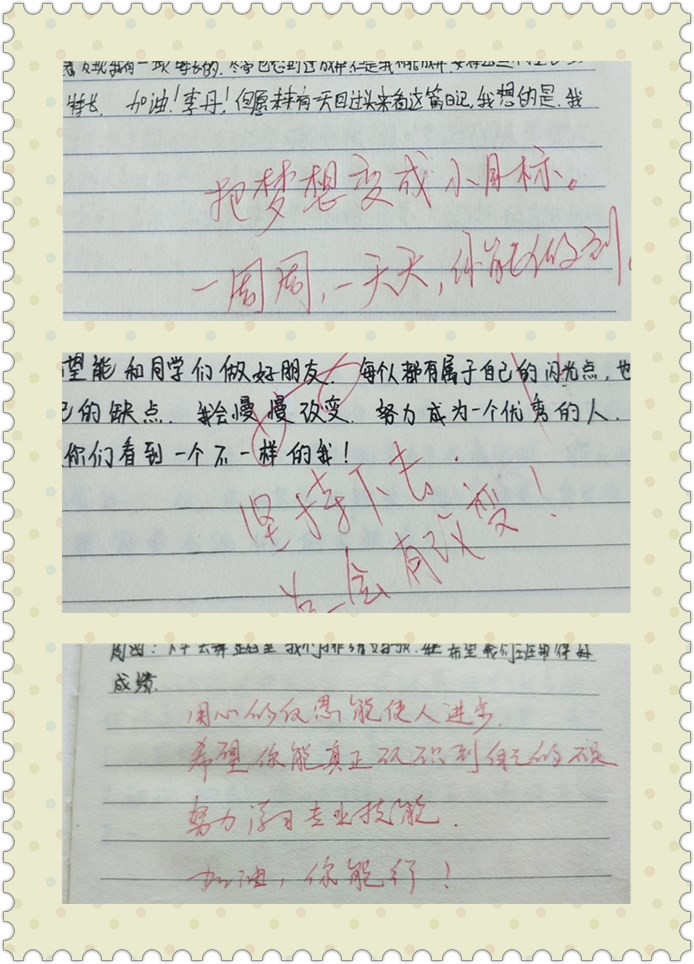 特长. 加油!李丹!但愿未来有一天回过头来看这篇日记,我想的是.我
把梦想变成小目标。
一周周,一天天,你能做到.
望能和同学们做好朋友. 每个人都有属于自己的闪光点,也
己的缺点. 我会慢慢改变. 努力成为一个优秀的人.
你们看到一个不一样的我!
坚持下去.
总会有改变!
成绩.
用心的反思能使人进步.
希望你能真正认识到自己的不足
努力学习专业技能.
加油,你能行!